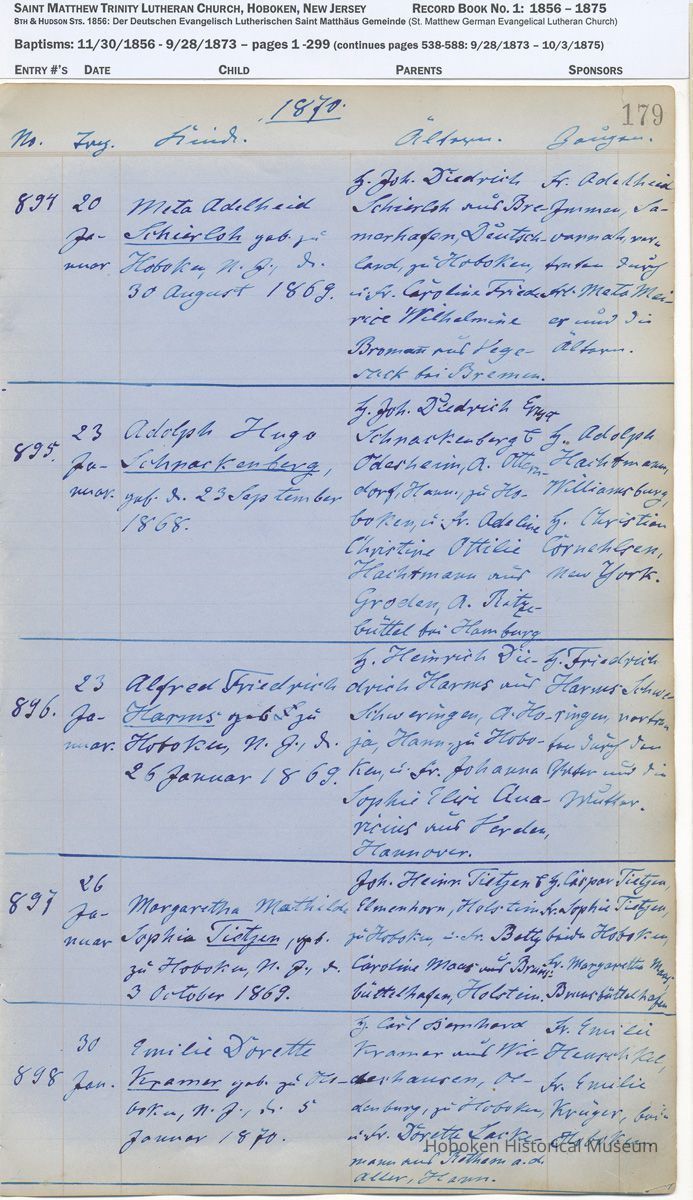 SAINT MATTHEW TRINITY LUTHERAN CHURCH, HOBOKEN, NEW JERSEY RECORD BOOK NO. 1: 1856 – 1875
8TH & HUDSON STS. 1856: Der Deutschen Evangelisch Lutherischen Saint Matthäus Gemeinde (St. Matthew German Evangelical Lutheran Church)
Baptisms: 11/30/1856 - 9/28/1873 – pages 1 -299 (continues pages 538-588: 9/28/1873 – 10/3/1875)
ENTRY #'S DATE CHILD PARENTS SPONSORS
1870.
179
No. Tag. Kind. Ältern. Zeugen.
894
20
Ja-
nuar
Meta Adelheid
Schierloh geb. zu
Hoboken, N. J., d.
30 August 1869.
H. Joh. Diedrich
Schierloh aus Bre-
merhafen, Deutsch-
land, zu Hoboken,
u. Fr. Caroline Friede
rice Wilhelmine
Bromann aus Vege-
sack bei Bremen.
Fr. Adelheid
Immen, Sa-
vannah, ver-
treten durch
Fr. Meta Mei-
er und die
Ältern.
895.
23
Ja-
nuar.
Adolph Hugo
Schnackenberg,
geb. d. 23 September
1868.
H. Joh. Diedrich Ernst
Schnackenberg
Odesheim, A. Ottern-
dorf, Hann., zu Ho-
boken, u. Fr. Adeline
Christine Ottilie
Hachtmann aus
Groden, A. Ritze-
büttel bei Hamburg
H. Adolph
Hachtmann,
Williamsburg,
H. Christian
Cornehlsen,
New York.
896.
23
Ja-
nuar.
Alfred Friedrich
Harms geb. zu
Hoboken, N. J., d.
26 Januar 1869.
H. Heinrich Die-
drich Harms aus
Schweringen, A. Ho-
ja, Hann., zu Hobo-
ken, u. Fr. Johanna
Sophie Elise Ana-
ricius aus Verden,
Hannover.
H. Friedrich
Harms Schwe-
ringen, vertre-
ten durch den
Vater und die
Mutter.
897
26
Ja-
nuar
Margaretha Mathilde
Sophia Tietzen, geb.
zu Hoboken, N. J., d.
3 October 1869.
Joh. Heinr. Tietzen
Elmenhorn, Holstein
zu Hoboken, u. Fr. Betty
Caroline Maas aus Bruns-
büttelhafen, Holstein.
H. Caspar Tietzen,
Fr. Sophie Tietzen,
beide Hoboken,
Fr. Margaretha Maas,
Brunsbüttelhafen
898
30
Jan.
Emilie Dorette
Kramer geb. zu Ho-
boken, N. J., d. 5
Januar 1870.
H. Carl Bernhard
Kramer aus Wil-
deshausen, Ol-
denburg, zu Hoboken,
u. Fr. Dorette Lacke-
mann aus Rethem a. d.
Aller, Hann.
Fr. Emilie
Henschkel,
Fr. Emilie
Krüger, bei-
de Hoboken
Hoboken Historical Museum